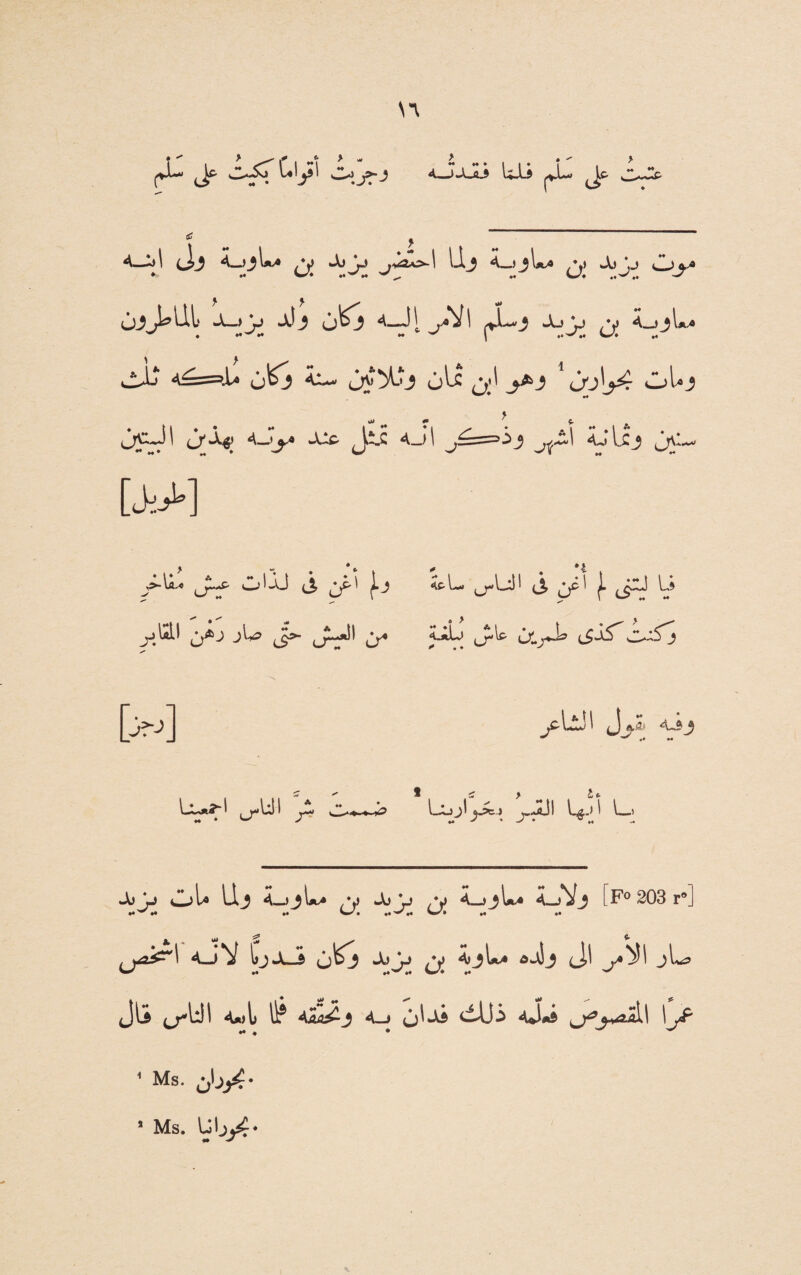 ١٦
عتبتُ على سَلْمٍ فلمّا فقدتُه وجرّبتُ أقواما بكيتُ على سَلْم
موت يزيد بن معاوية ولمّا احتُضر يزيد بن معاوية ولّى ابنه
معاوية بن يزيد وسلّم الأمر إليه وكان وُلد يزيدُ بالماطرون
ومات بحوّارين ¹ وهو ابن ثمان وثلاثين سنة وكان مُلكه ثلث
سنين وثمانية أشهر وذُكر انّه تمثّل عند موته بهذين البيتين
[طويل]
فيا ليتني لم أغن في الناس ساعة ولم أغن في لذّات عيش مُفاخر
وكنت كذى طمرين عاش ببُلغة من العيش حتّى صار رهن المقابر
وفيه يقول الشاعر [رجز]
يا أيّها القبرُ بحوّارينا ² ضممتَ شرَّ الناس اجمعينا
[F° 203 r°] ولاية معاوية بن يزيد بن معاوية ولمّا مات يزيد
صار الأمر الى ولده معاوية بن يزيد وكان قدريًّا لأنّه اشخص
عمرًا المقصوص فعلّمه ذلك فدان به وتحقّقه فلمّا بايعه الناس قال
¹ Ms. بحوران.
² Ms. بحورانا.